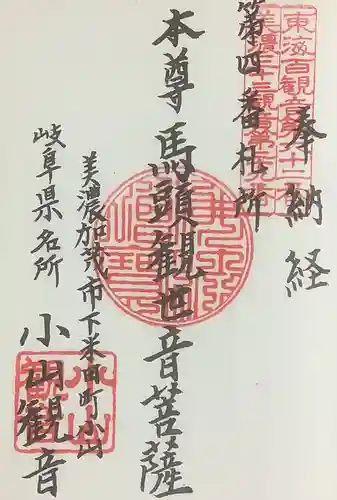 奉納経
第四番札所
本尊馬頭観世音菩薩
美濃加茂市下米田町小山
岐阜県名所
小山観音
東海百観音第
美濃三十三観音第
小山